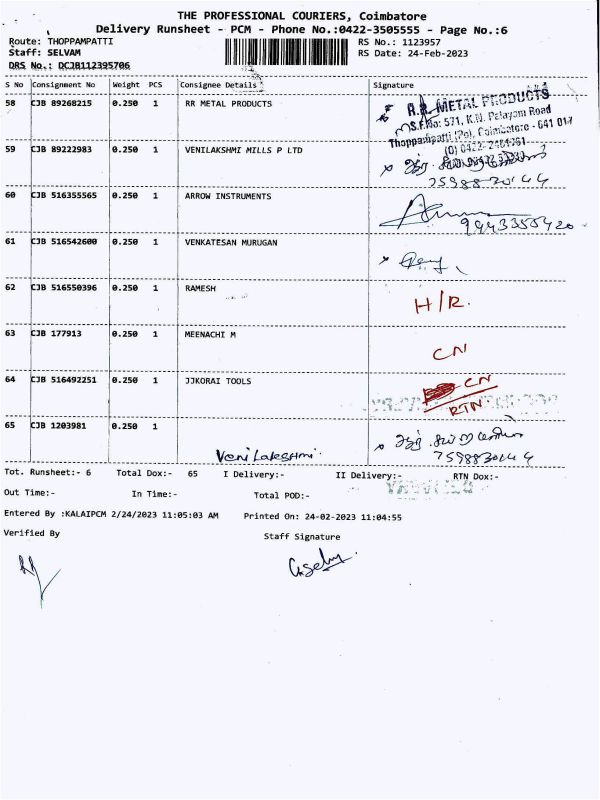 THE PROFESSIONAL COURIERS, Coimbatore
Delivery Runsheet - PCM - Phone No.:0422-3505555 - Page No.:6
Route: THOPPAMPATTI RS No.: 1123957
Staff: SELVAM RS Date: 24-Feb-2023
DRS No.: DCJB112395706
S No Consignment No Weight PCS Consignee Details Signature
58 CJB 89268215 0.250 1 RR METAL PRODUCTS
R.R. METAL PRODUCTS
S.F.No: 571, K.N. Palayam Road
Thoppampatti (Po), Coimbatore - 641 017
59 CJB 89222983 0.250 1 VENILAKSHMI MILLS P LTD
60 CJB 516355565 0.250 1 ARROW INSTRUMENTS
9443355420
61 CJB 516542600 0.250 1 VENKATESAN MURUGAN
62 CJB 516550396 0.250 1 RAMESH H/R.
63 CJB 177913 0.250 1 MEENACHI M CN
64 CJB 516492251 0.250 1 JJKORAI TOOLS CN
RTN.
65 CJB 1203981 0.250 1
Veni Lakeshmi. 7598830144
Tot. Runsheet:- 6 Total Dox:- 65 I Delivery:- II Delivery:- RTN Dox:-
Out Time:- In Time:- Total POD:-
Entered By :KALAIPCM 2/24/2023 11:05:03 AM Printed On: 24-02-2023 11:04:55
Verified By Staff Signature